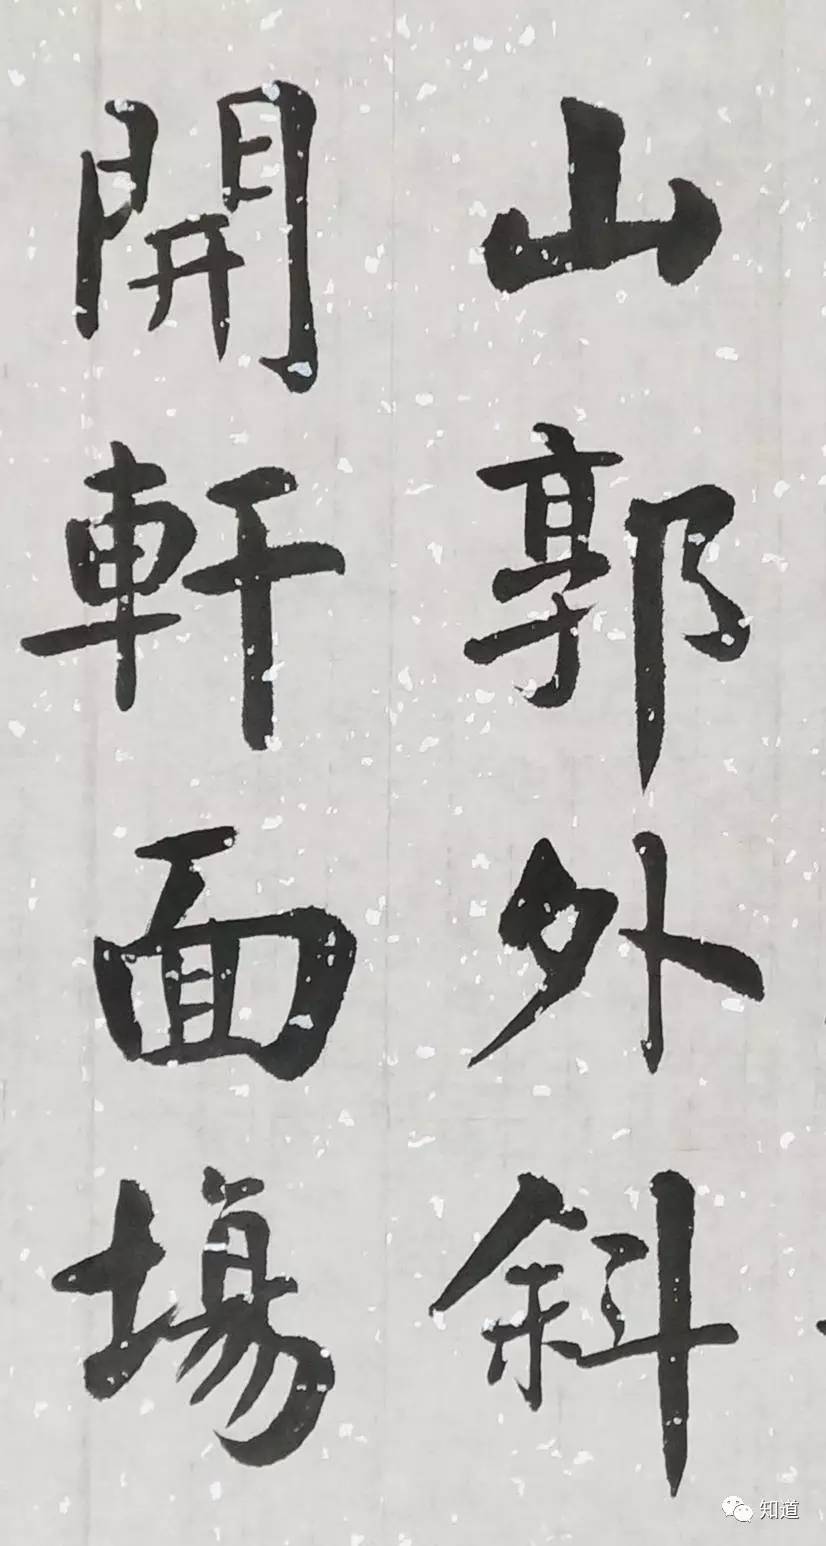 山郭外斜
開軒面場
知道